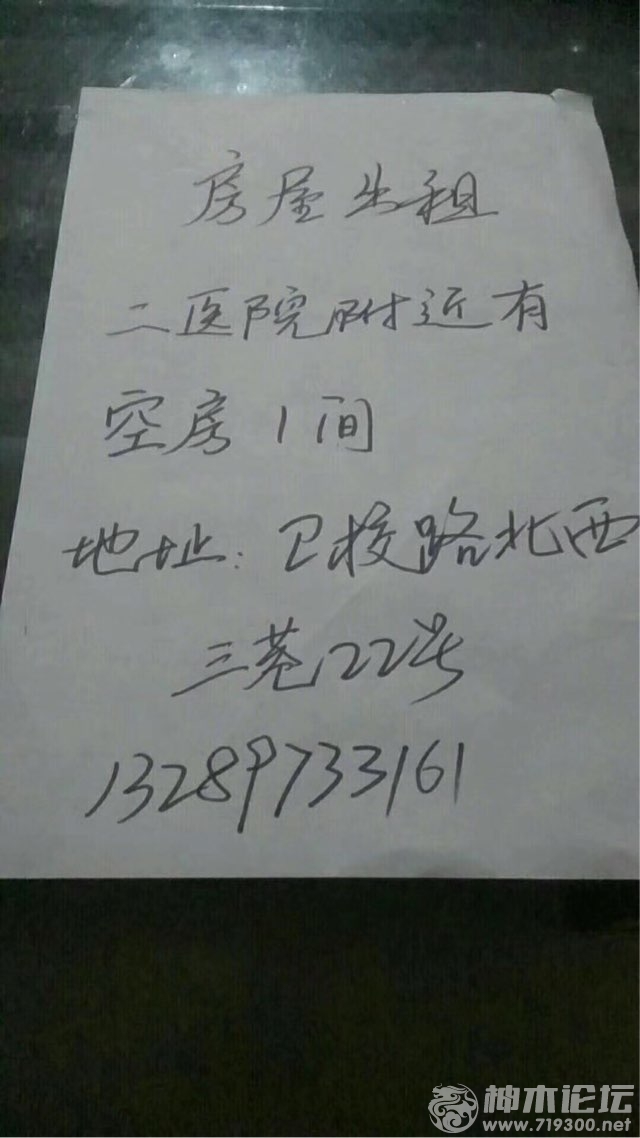 房屋出租
二医院附近有
空房1间
地址:卫校路北西
三巷22号
13289733161
神木论坛
www.719300.net